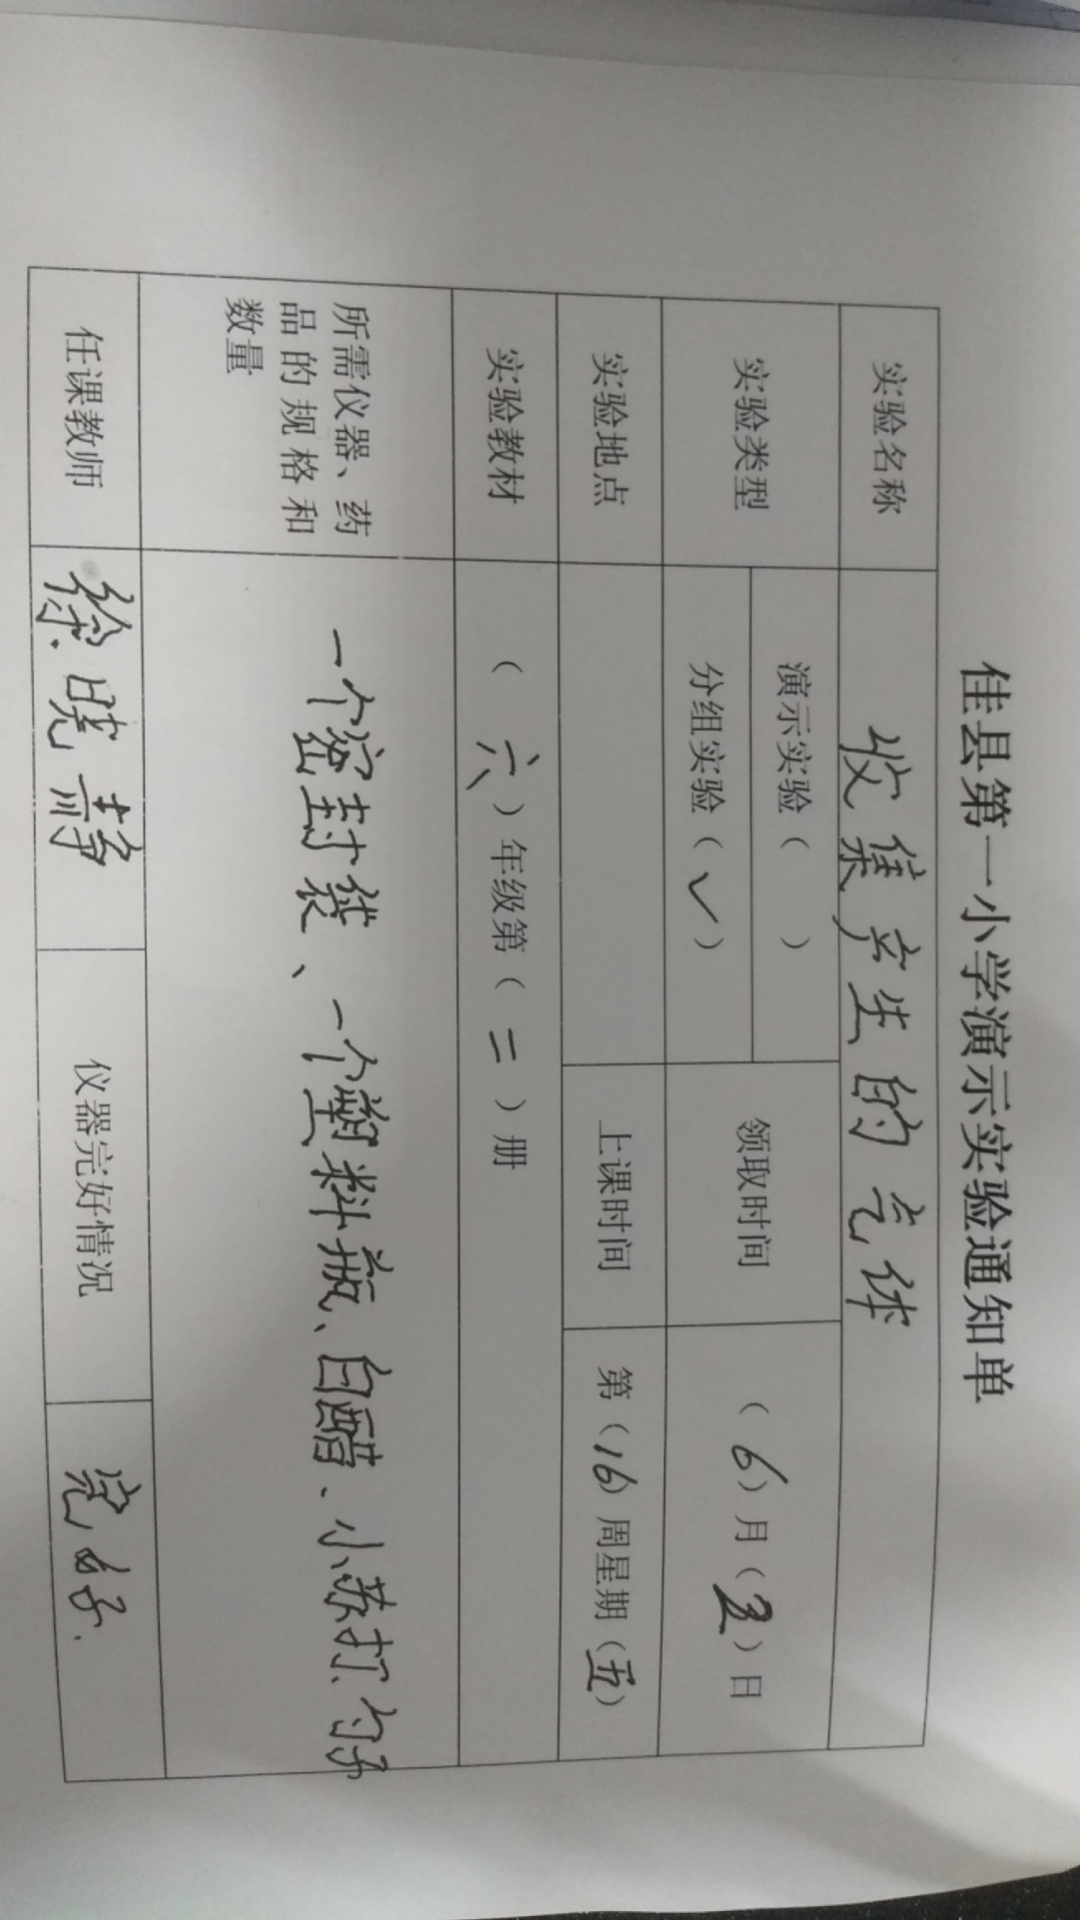 佳县第一小学演示实验通知单
实验名称 收集产生的气体
实验类型 演示实验（ ） 领取时间 （6）月（ ）日
分组实验（✓）
实验地点 上课时间 第（16）周星期（五）
实验教材 （六）年级第（二）册
所需仪器、药
品的规格和
数量
一个密封袋、一个塑料瓶、白醋、小苏打、勺子
任课教师 徐晓静 仪器完好情况 完好.